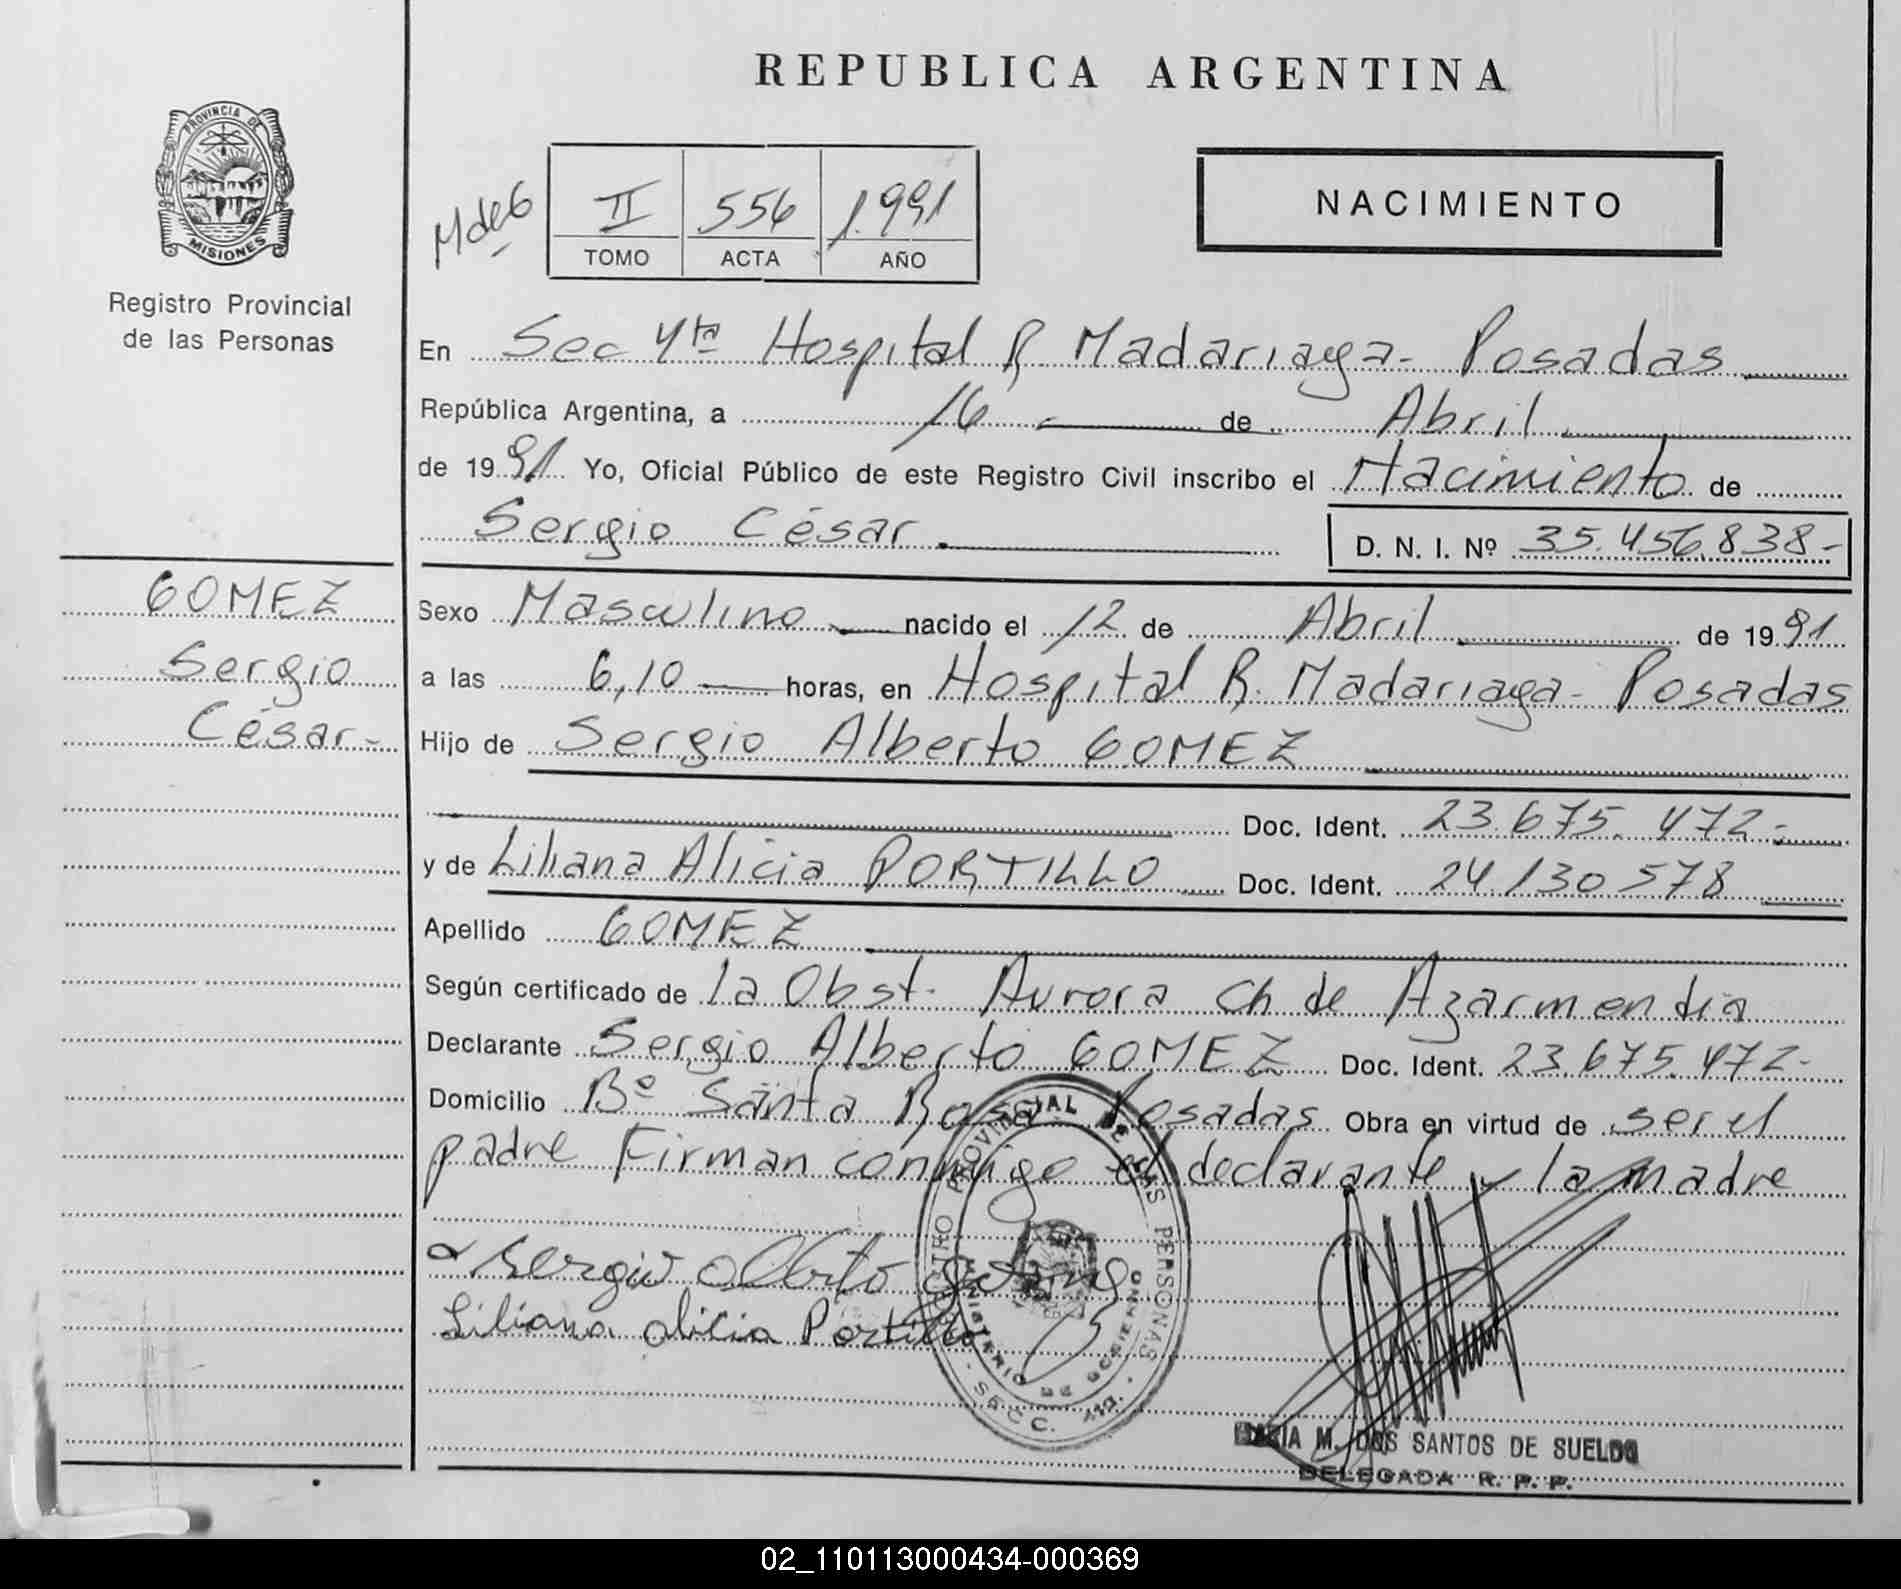 REPUBLICA ARGENTINA
PROVINCIA DE
MISIONES
Registro Provincial
de las Personas
M de G
II 556 1.991
TOMO ACTA AÑO
NACIMIENTO
En Sec 4ta Hospital R. Madariaga- Posadas
República Argentina, a 16 de Abril
de 1991 Yo, Oficial Público de este Registro Civil inscribo el Nacimiento de
Sergio César D. N. I. Nº 35.456.838-
GOMEZ
Sergio
César-
Sexo Masculino nacido el 12 de Abril de 1991
a las 6,10 horas, en Hospital R. Madariaga- Posadas
Hijo de Sergio Alberto GOMEZ
Doc. Ident. 23.675.472-
y de Liliana Alicia PORTILLO Doc. Ident. 24.130.578
Apellido GOMEZ
Según certificado de la Obst. Aurora Ch de Azarmendia
Declarante Sergio Alberto GOMEZ Doc. Ident. 23.675.472-
Domicilio Bº Santa Rosa Posadas Obra en virtud de ser el
padre Firman conmigo el declarante y la madre
Sergio Alberto Gomez
Liliana Alicia Portillo
REGISTRO PROVINCIAL DE LAS PERSONAS
MINISTERIO DE GOBIERNO
- SECC. 4ta. -
MARIA M. DOS SANTOS DE SUELDO
DELEGADA R. P. P.
02_110113000434-000369